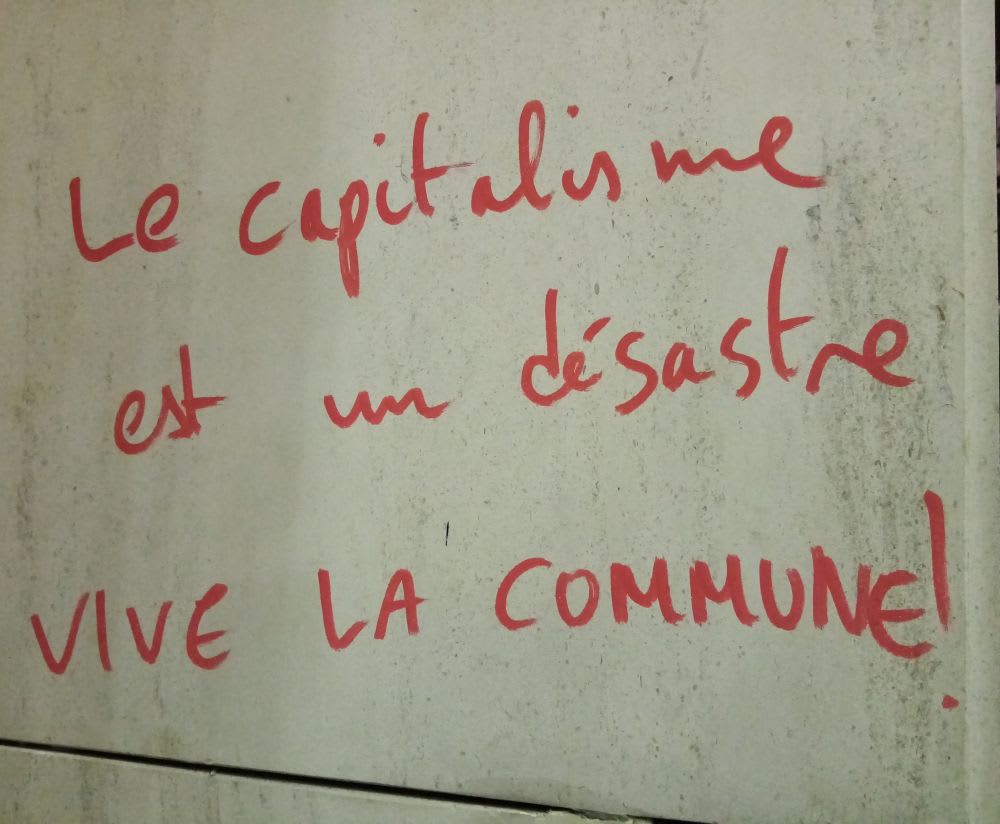 Le capitalisme
est un désastre
VIVE LA COMMUNE!